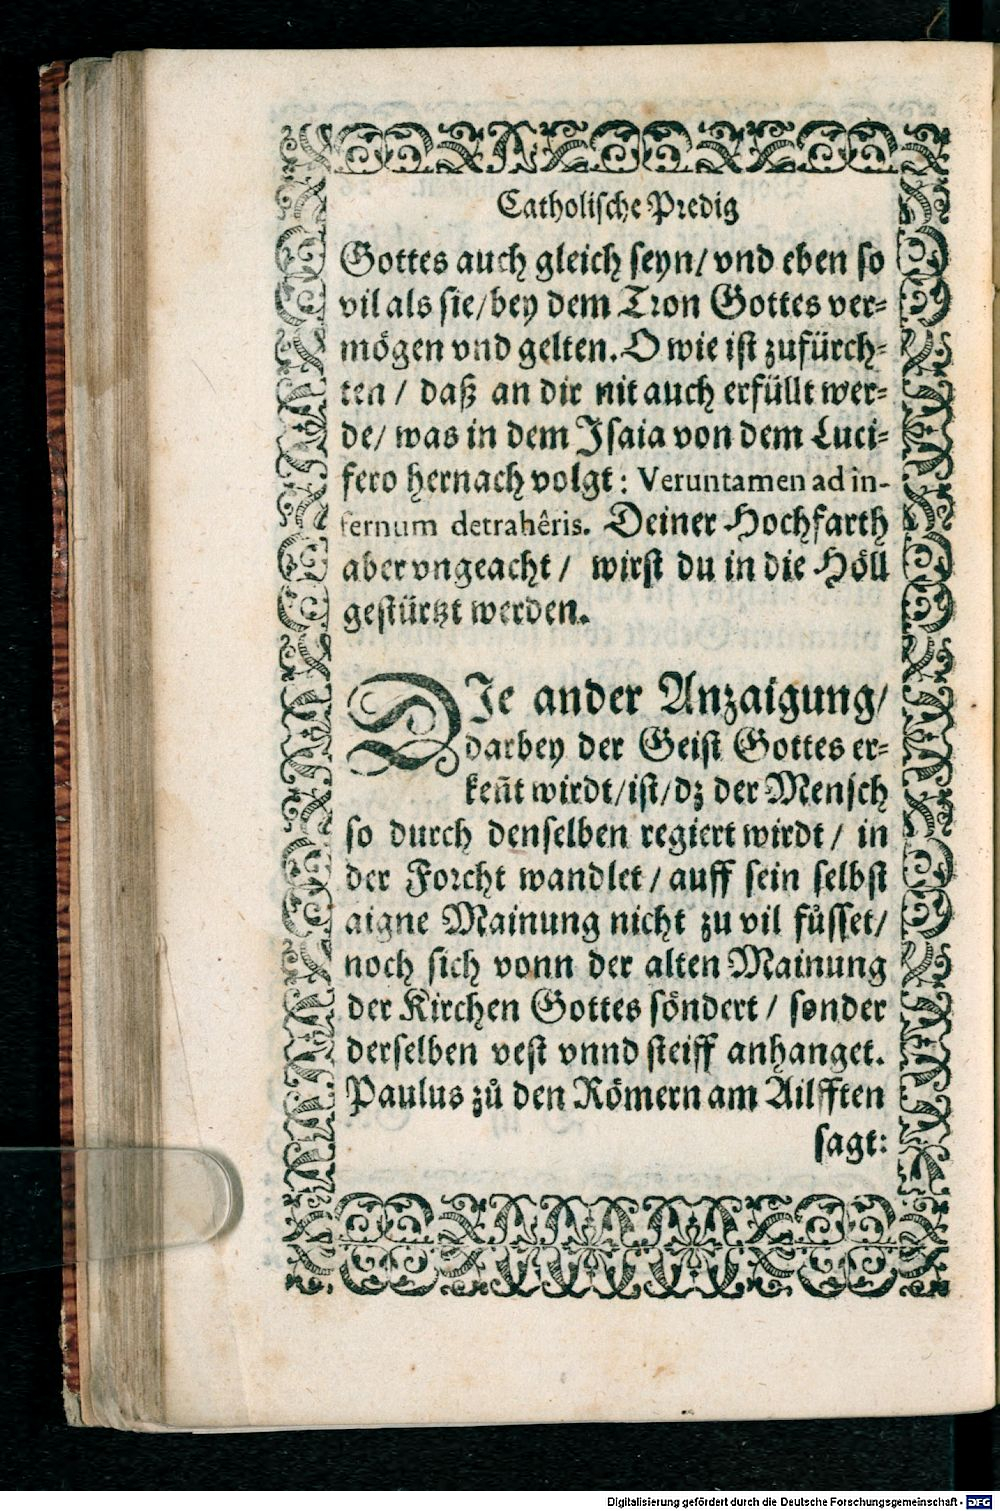 Catholische Predig
Gottes auch gleich seyn/ vnd eben so
vil als sie/bey dem Tron Gottes ver=
mögen vnd gelten. O wie ist zufürch=
ten / daß an dir nit auch erfüllt wer=
de/ was in dem Isaia von dem Luci=
fero hernach volgt: Veruntamen ad in-
fernum detrahêris. Deiner Hochfarth
aber vngeacht / wirst du in die Höll
gestürtzt werden.
DIe ander Anzaigung/
darbey der Geist Gottes er=
keñt wirdt/ist/dz der Mensch
so durch denselben regiert wirdt / in
der Forcht wandlet / auff sein selbst
aigne Mainung nicht zu vil fůsset/
noch sich vonn der alten Mainung
der Kirchen Gottes söndert / sonder
derselben vest vnnd steiff anhanget.
Paulus zů den Römern am Ailfften
sagt:
Digitalisierung gefördert durch die Deutsche Forschungsgemeinschaft - DFG